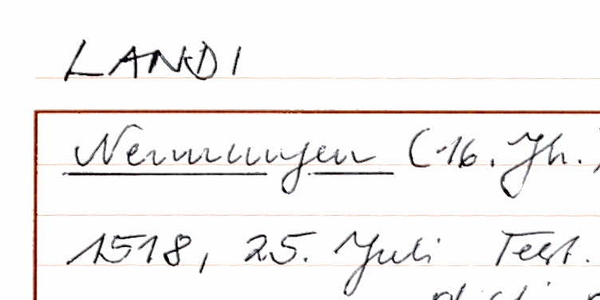 LANDI
Nennungen (16. Jh.)
1518, 25. Juli Test.